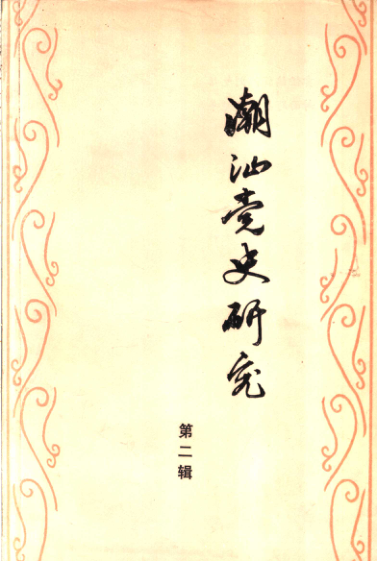 潮汕党史研究
第二辑